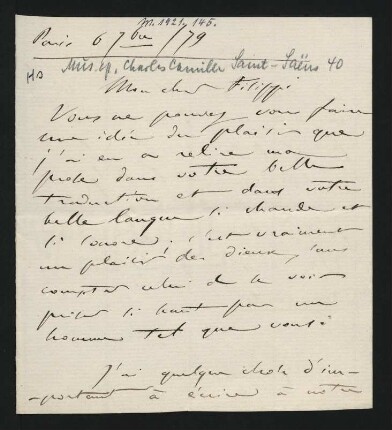 M. 1921, 145.
Paris 6 7bre /79
Mus. ep. Charles Camille Saint-Saëns 40
HS
Mon cher Filippi
Vous ne pouvez vous faire
une idée du plaisir que
j'ai eu à relire ma
prose dans votre belle
traduction et dans votre
belle langue si chaude et
si sonore; c'est vraiment
un plaisir des dieux, sans
compter celui de se voir
priser si haut par un
homme tel que vous.
J'ai quelque chose d'im-
-portant à écrire à notre